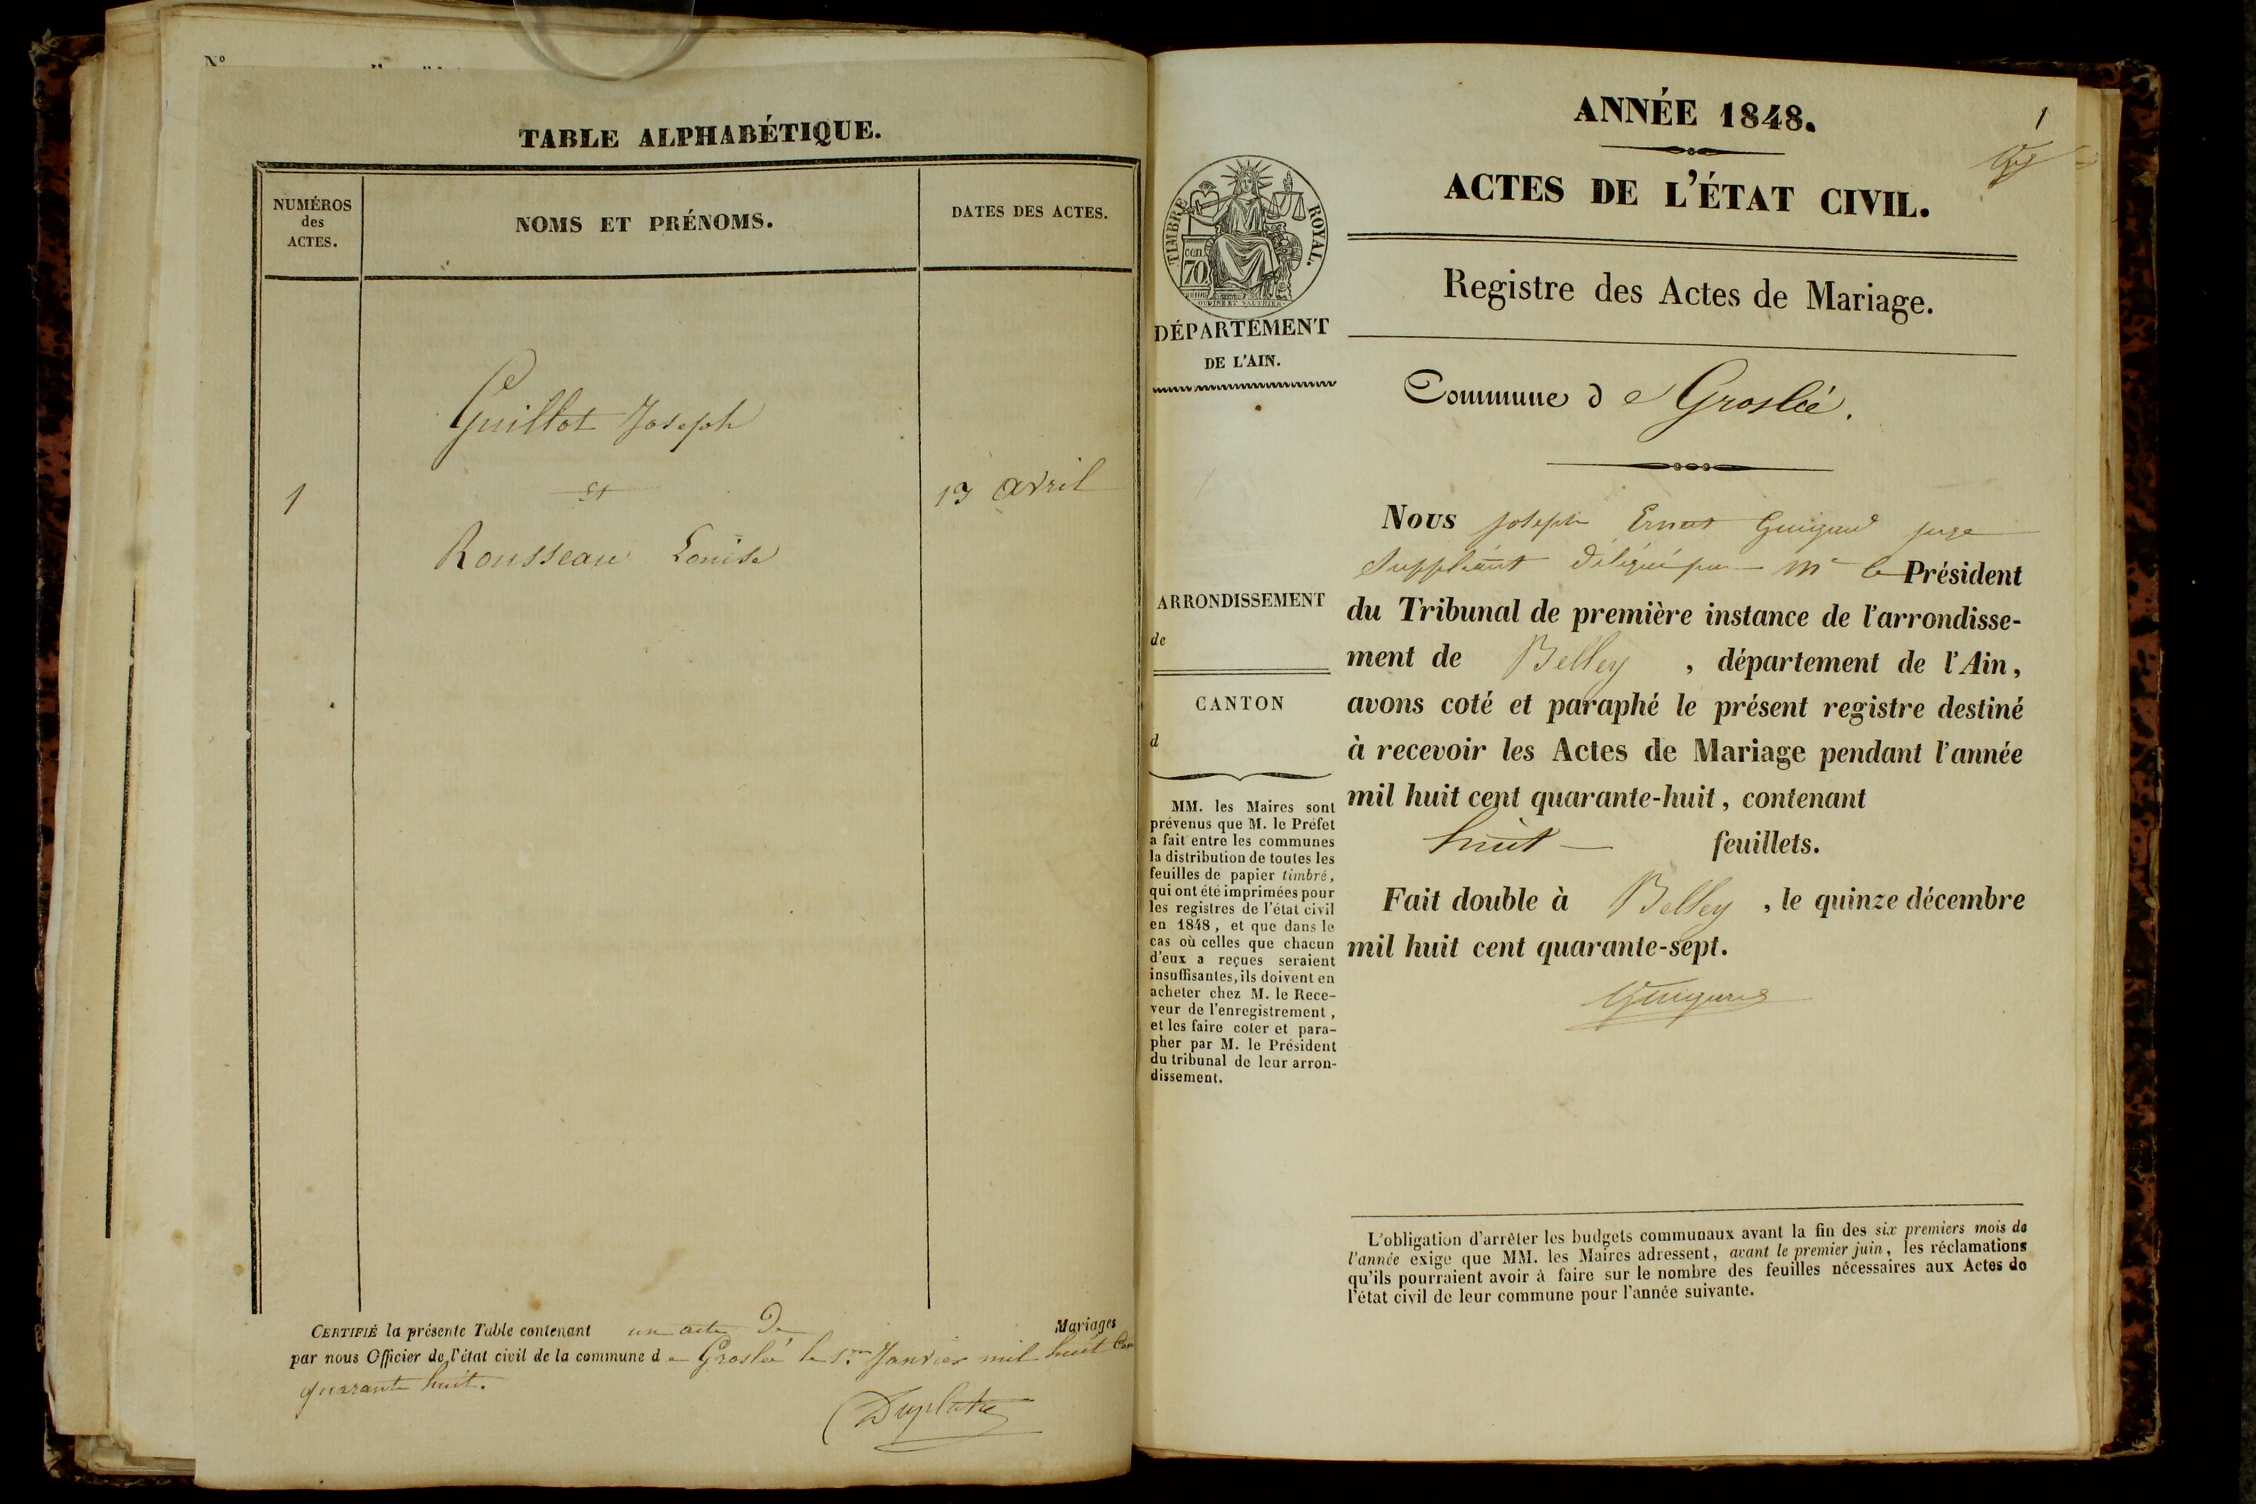 N°
TABLE ALPHABÉTIQUE.
NUMÉROS
des
ACTES.
NOMS ET PRÉNOMS.
DATES DES ACTES.
Guillot Joseph
1
et
13 avril
Rousseau Louise
CERTIFIÉ la présente Table contenant un acte De Mariages
par nous Officier de l'état civil de la commune d e Groslée le 1.er Janvier mil huit Cent
quarante huit.
ANNÉE 1848.
1
ACTES DE L'ÉTAT CIVIL.
Registre des Actes de Mariage.
TIMBRE ROYAL.
cen.
70
DÉPARTEMENT
DE L'AIN.
Commune d e Groslée.
Nous Joseph Ernest Guigard juge
Suppléant Délégué par Mr le Président
du Tribunal de première instance de l'arrondisse-
ment de Belley, département de l'Ain,
avons coté et paraphé le présent registre destiné
à recevoir les Actes de Mariage pendant l'année
mil huit cent quarante-huit, contenant
huit feuillets.
Fait double à Belley, le quinze décembre
mil huit cent quarante-sept.
ARRONDISSEMENT
de
CANTON
d
MM. les Maires sont
prévenus que M. le Préfet
a fait entre les communes
la distribution de toutes les
feuilles de papier timbré,
qui ont été imprimées pour
les registres de l'état civil
en 1848, et que dans le
cas où celles que chacun
d'eux a reçues seraient
insuffisantes, ils doivent en
acheter chez M. le Rece-
veur de l'enregistrement,
et les faire coter et para-
pher par M. le Président
du tribunal de leur arron-
dissement.
L'obligation d'arrêter les budgets communaux avant la fin des six premiers mois de
l'année exige que MM. les Maires adressent, avant le premier juin, les réclamations
qu'ils pourraient avoir à faire sur le nombre des feuilles nécessaires aux Actes de
l'état civil de leur commune pour l'année suivante.